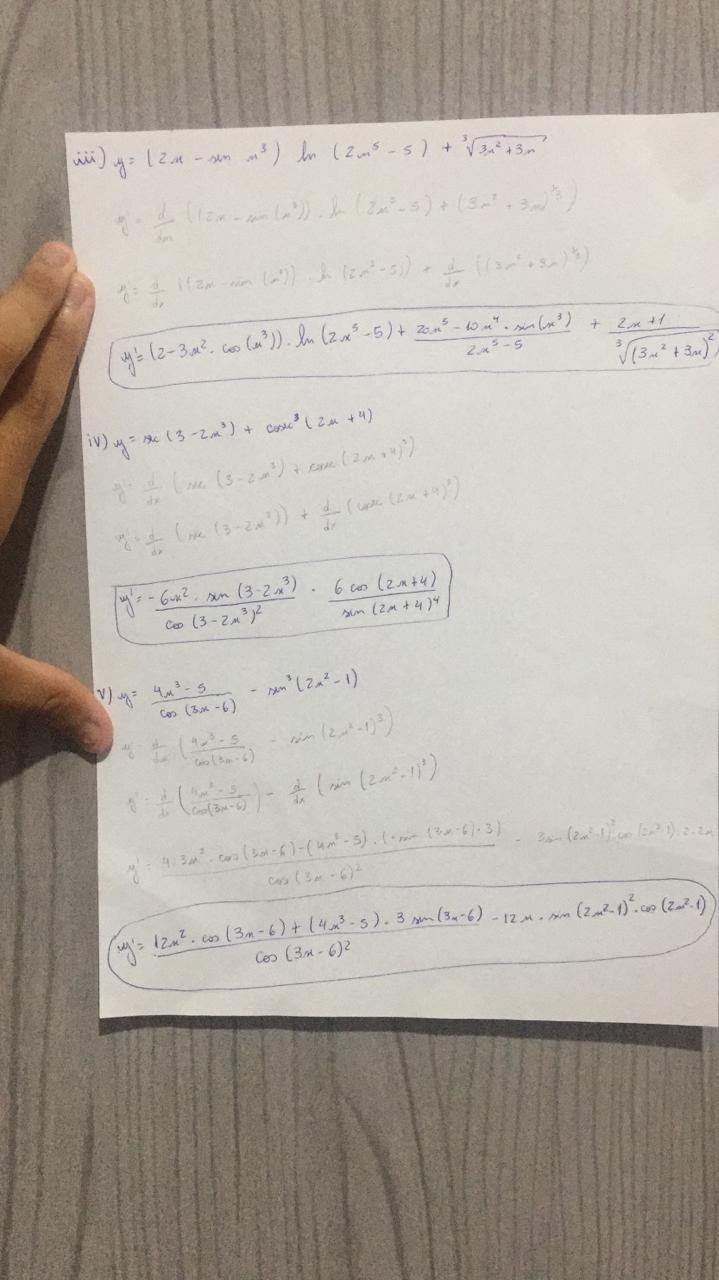 iii) y = (2x - sen x³) ln (2x⁵ - 5) + ∛(3x² + 3x)
y' = d/dx ((2x - sin (x³)) · ln (2x⁵ - 5) + (3x² + 3x)^(1/3))
y' = d/dx ((2x - sin (x³)) · ln (2x⁵ - 5)) + d/dx ((3x² + 3x)^(1/3))
y' = (2 - 3x² · cos (x³)) · ln (2x⁵ - 5) + (20x⁵ - 10x⁴ · sin (x³))/(2x⁵ - 5) + (2x + 1)/∛((3x² + 3x)²)
iv) y = sec (3 - 2x³) + cosec³ (2x + 4)
y' = d/dx (sec (3 - 2x³) + cosec (2x + 4)³)
y' = d/dx (sec (3 - 2x³)) + d/dx (cosec (2x + 4)³)
y' = - (6x² · sin (3 - 2x³))/(cos (3 - 2x³)²) · (6 cos (2x + 4))/(sin (2x + 4)⁴)
v) y = (4x³ - 5)/(cos (3x - 6)) - sen³ (2x² - 1)
y' = d/dx ((4x³ - 5)/(cos (3x - 6)) - sin (2x² - 1)³)
y' = d/dx ((4x³ - 5)/(cos (3x - 6))) - d/dx (sin (2x² - 1)³)
y' = (4 · 3x² · cos (3x - 6) - (4x³ - 5) · (- sin (3x - 6) · 3))/(cos (3x - 6)²) - 3 sin (2x² - 1)² cos (2x² - 1) · 2 · 2x
y' = (12x² · cos (3x - 6) + (4x³ - 5) · 3 sin (3x - 6))/(cos (3x - 6)²) - 12x · sin (2x² - 1)² · cos (2x² - 1)